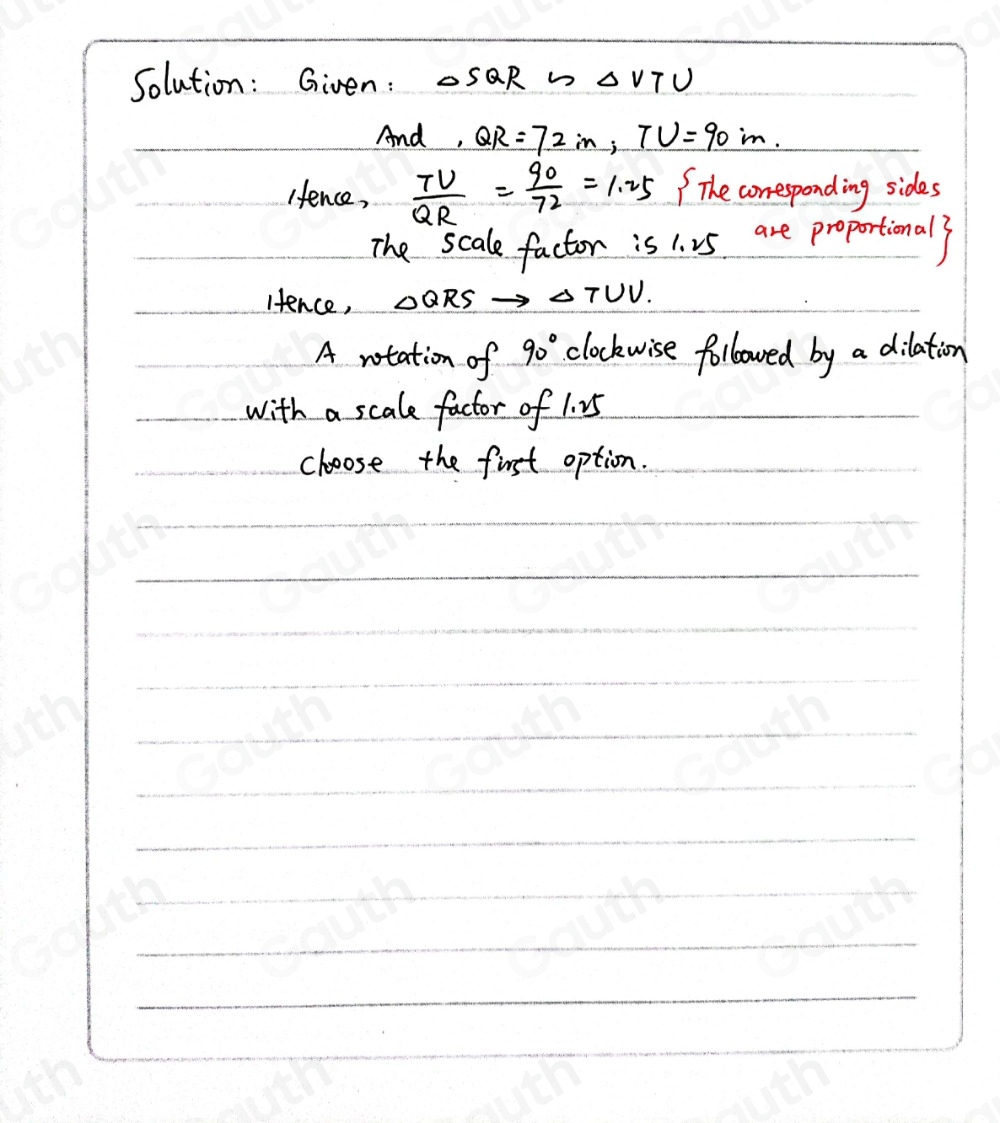 Solution: Given: △SQR ∽ △VTU
And , QR = 72 in ; TU = 90 in.
Hence, TU/QR = 90/72 = 1.25 {The corresponding sides
are proportional}
The scale factor is 1.25.
Hence, △QRS → △TUV.
A rotation of 90° clockwise followed by a dilation
with a scale factor of 1.25
choose the first option.